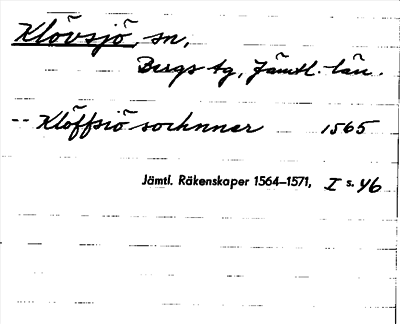 Klövsjö, sn,
Bergs tg, Jämtl. län.
-- Klöffsiö sochnner 1565
Jämtl. Räkenskaper 1564–1571, I s. 46